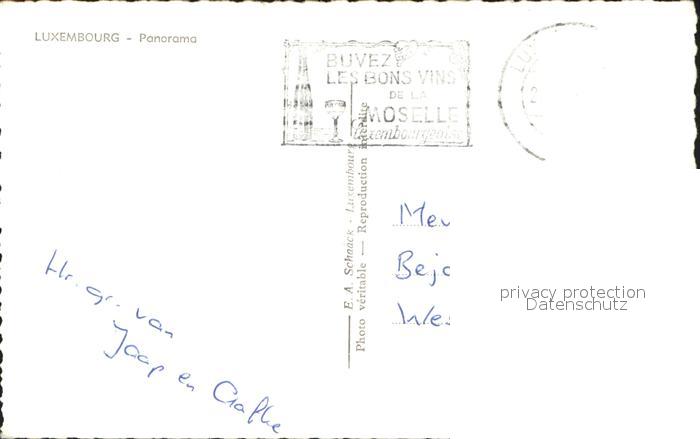 LUXEMBOURG - Panorama
BUVEZ
LES BONS VINS
DE LA
MOSELLE
Luxembourgeoise
LU
E. A. Schaack - Luxembourg
Photo véritable — Reproduction interdite
Mev
Bejo
Wes
privacy protection
Datenschutz
Hr. gr. van
Jaap en